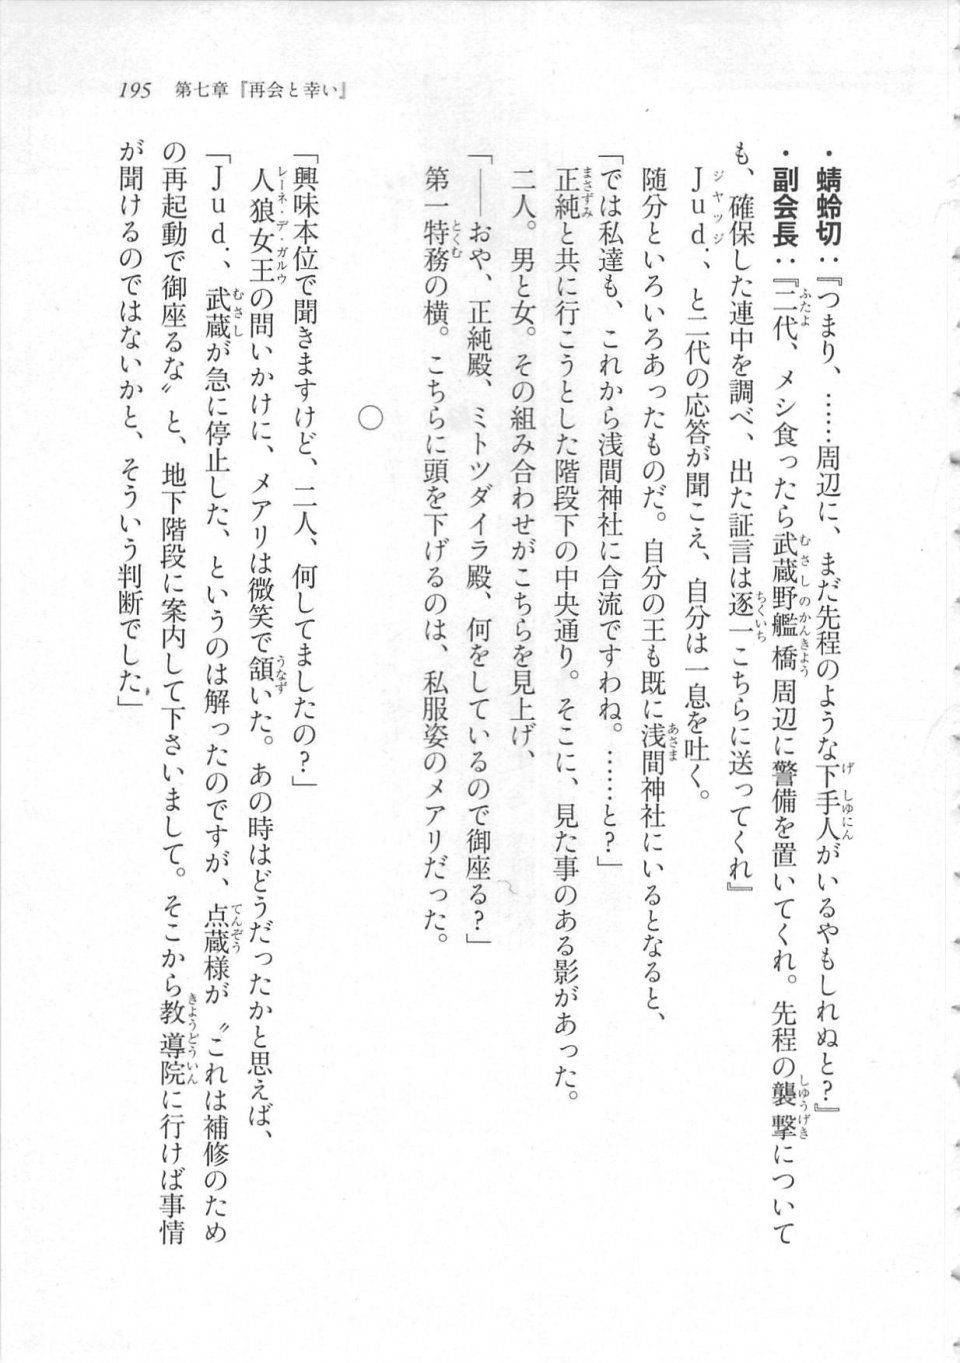 195　第七章『再会と幸い』
・蜻蛉切：『つまり、……周辺に、まだ先程のような下手人がいるやもしれぬと？』
・副会長：『二代、メシ食ったら武蔵野艦橋周辺に警備を置いてくれ。先程の襲撃について
も、確保した連中を調べ、出た証言は逐一こちらに送ってくれ』
　Jud.、と二代の応答が聞こえ、自分は一息を吐く。
　随分といろいろあったものだ。自分の王も既に浅間神社にいるとなると、
「では私達も、これから浅間神社に合流ですわね。……と？」
　正純と共に行こうとした階段下の中央通り。そこに、見た事のある影があった。
　二人。男と女。その組み合わせがこちらを見上げ、
「――おや、正純殿、ミトツダイラ殿、何をしているので御座る？」
　第一特務の横。こちらに頭を下げるのは、私服姿のメアリだった。
○
「興味本位で聞きますけど、二人、何してましたの？」
　人狼女王の問いかけに、メアリは微笑で頷いた。あの時はどうだったかと思えば、
「Jud.、武蔵が急に停止した、というのは解ったのですが、点蔵様が〝これは補修のため
の再起動で御座るな〟と、地下階段に案内して下さいまして。そこから教導院に行けば事情
が聞けるのではないかと、そういう判断でした」